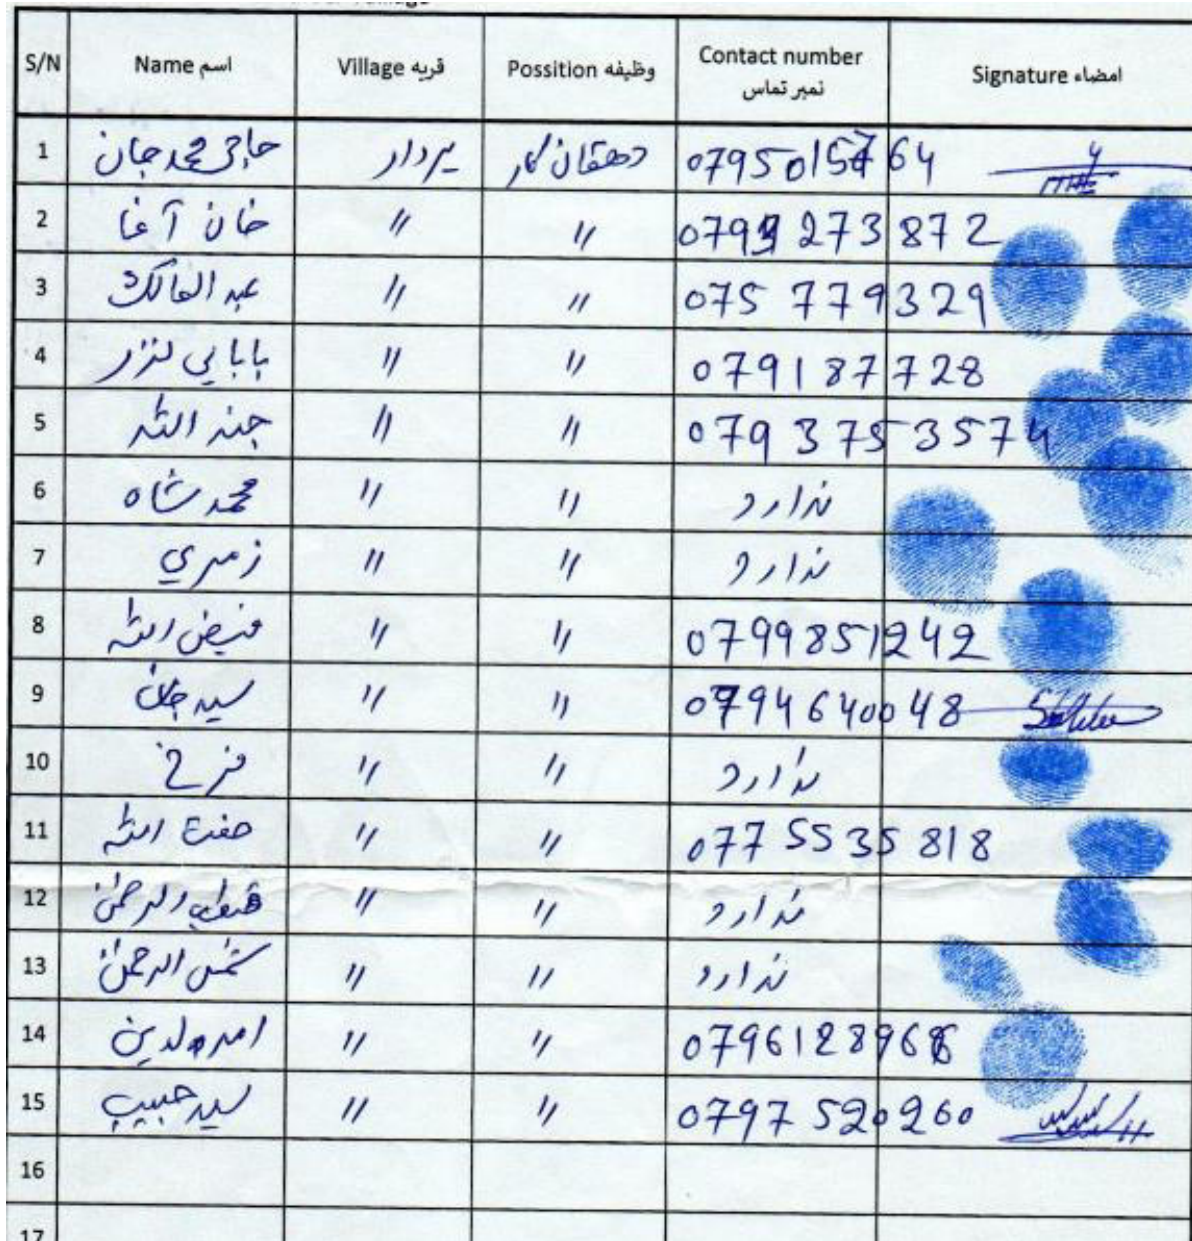 S/N Name اسم Village قریه Possition وظیفه Contact number نمبر تماس Signature امضاء
1 حاجی محمد جان دهقان کار 0795015764
2 خان آغا // // 0799 273 872
3 عبد المالک // // 075 779329
4 بابایی نزر // // 079187728
5 جنه الله // // 079 3753574
6 محمد شاه // // ندارد
7 زمری // // ندارد
8 فیض الله // // 0799851242
9 سید جان // // 0794640048
10 فرخ // // ندارد
11 الله // // 0775535818
12 الرحمن // // ندارد
13 شمس الرحمن // // ندارد
14 // // 079612896
15 سید حبیب // // 0797520260
16
17